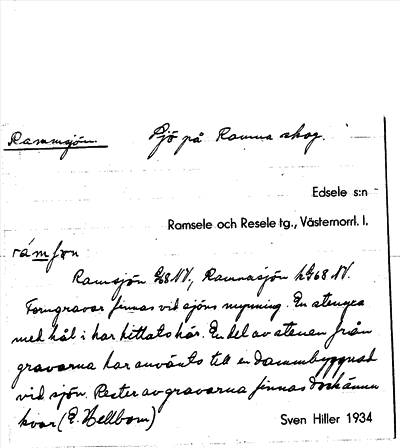 Rammsjön Sjö på Ramna skog.
Edsele s:n
Ramsele och Resele tg., Västernorrl. l.
rámʃɷn
Ramsjön G68 NV, Ramnasjön hG68 NV.
Forngravar finnas vid sjöns mynning. En stenyxa
med hål i har hittats här. En del av stenen från
gravarna har använts till en dammbyggnad
vid sjön. Rester av gravarna finnas dock ännu
kvar (E. Hellbom) Sven Hiller 1934